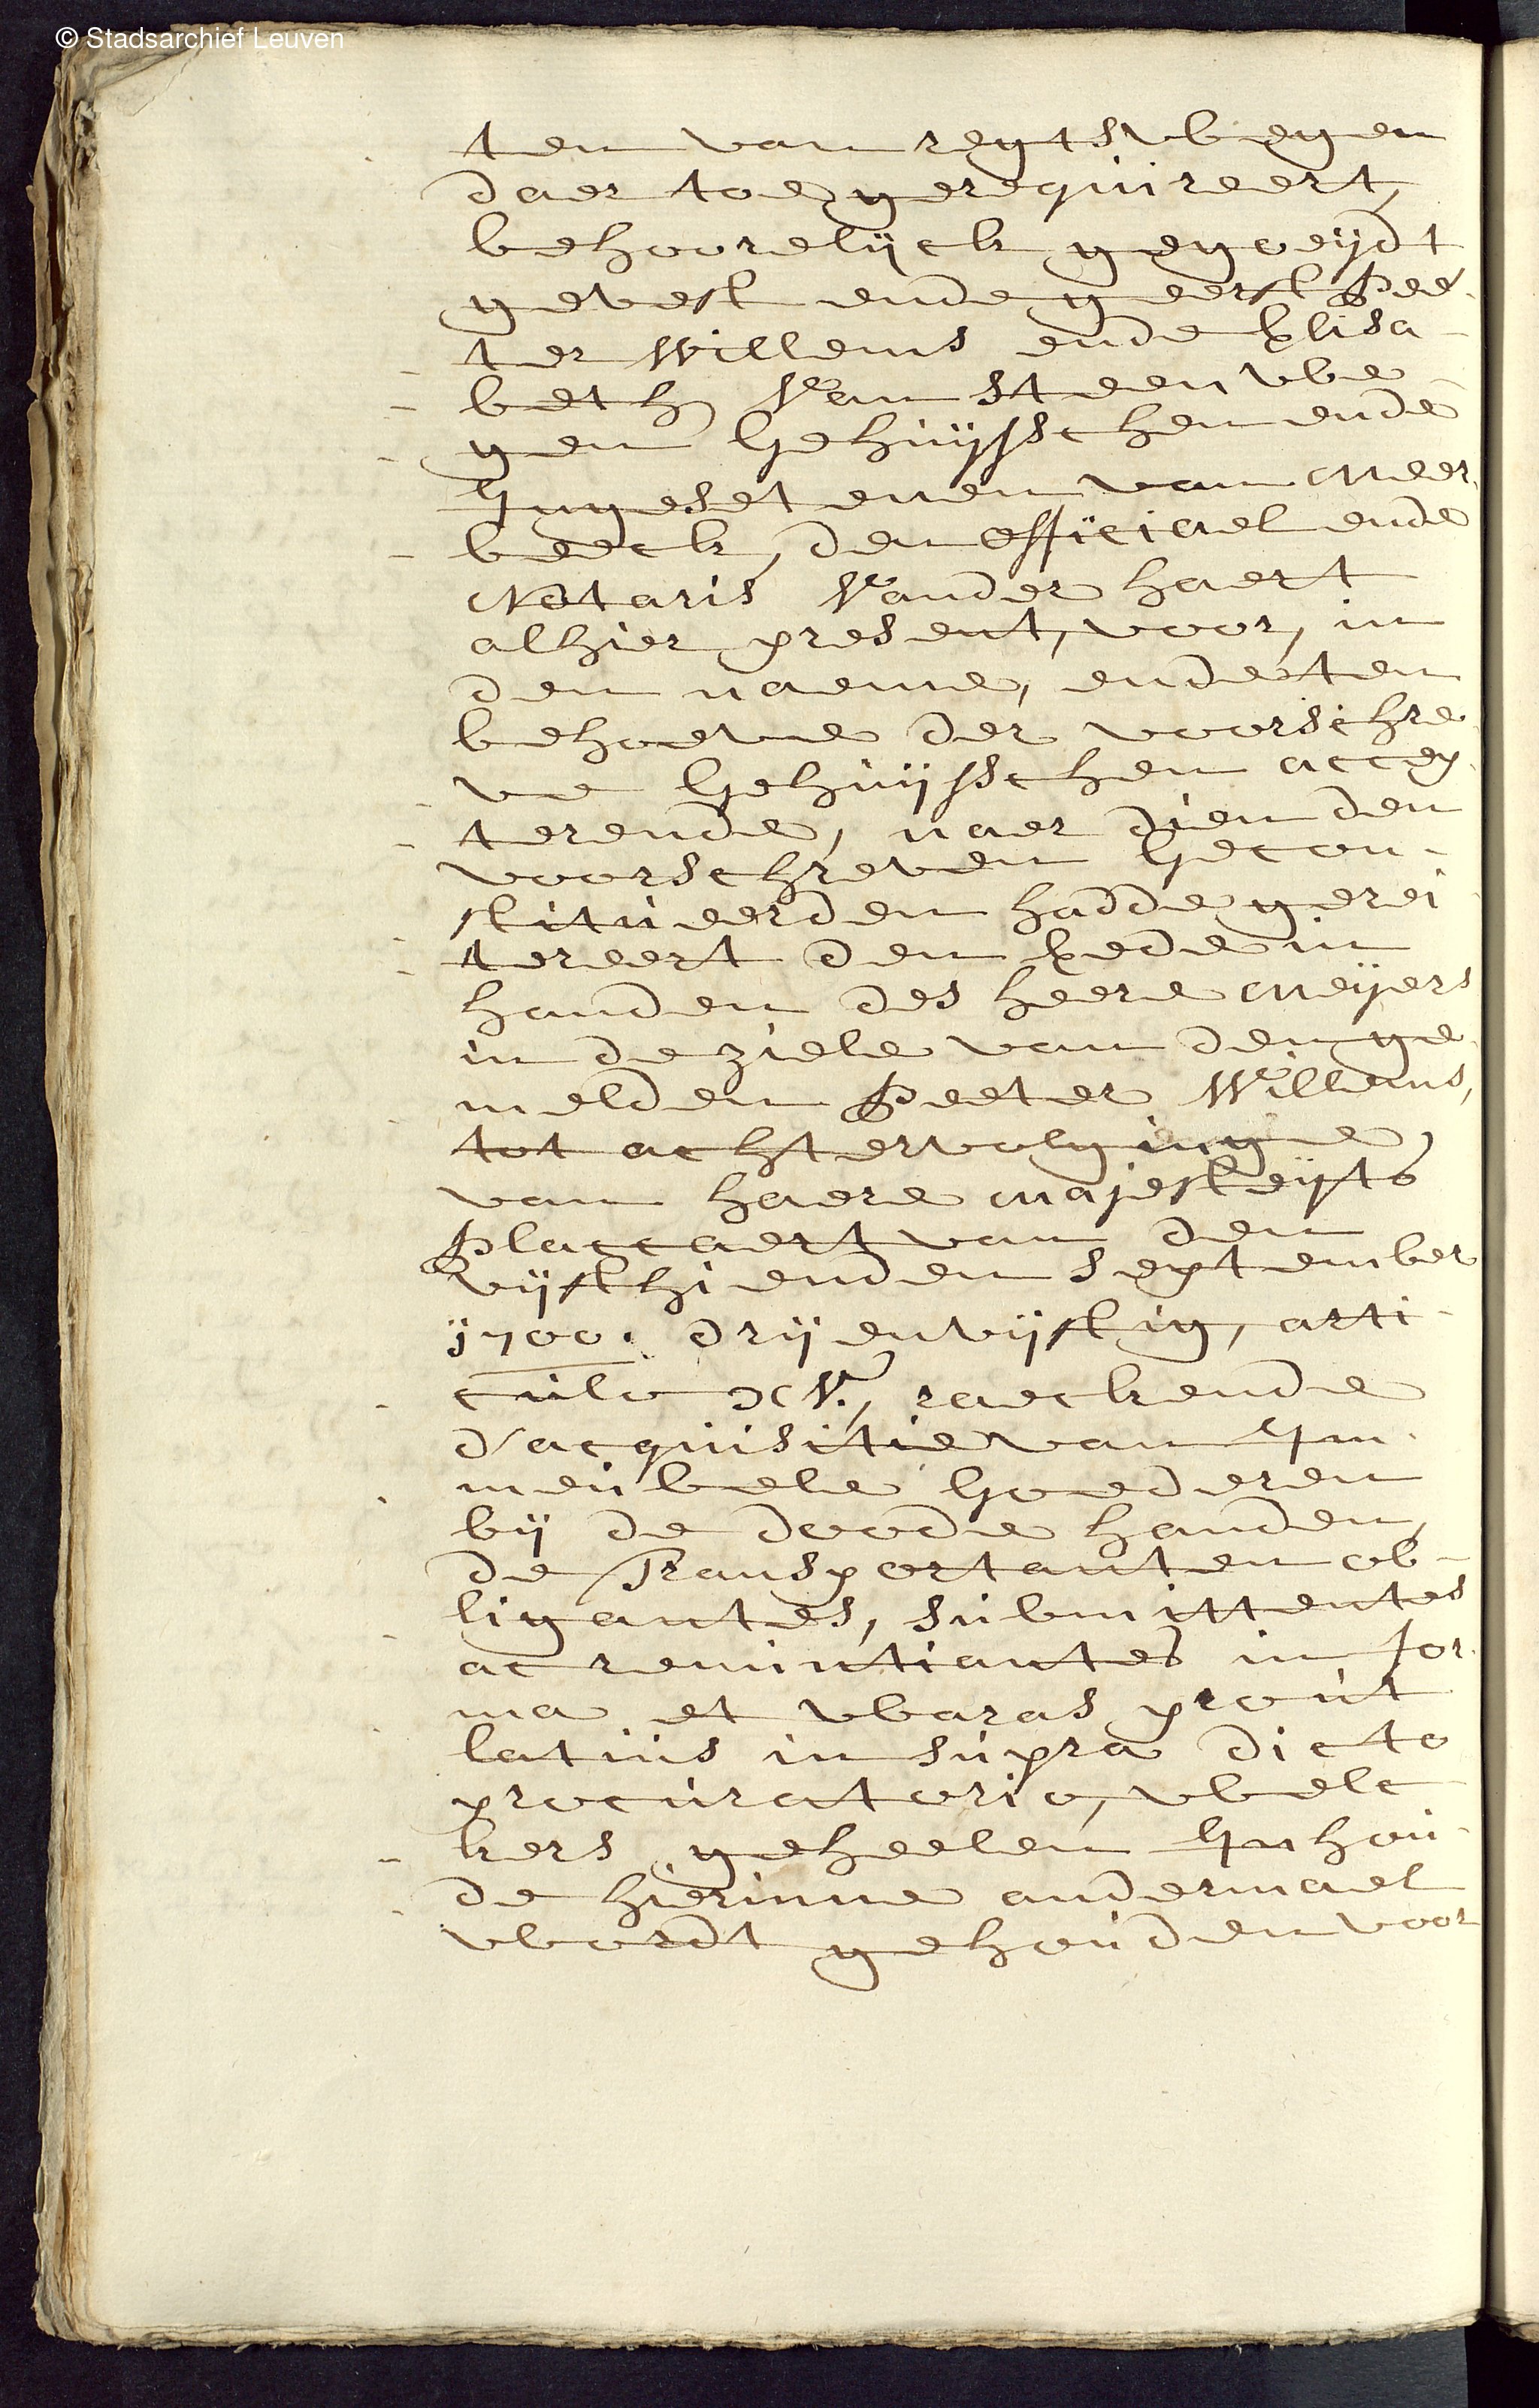 © Stadsarchief Leuven
ten van regtswegen
daer toe gerequireert,
behoorelijck gegoeijdt
gevest ende geerft Pee-
ter Willems ende Elisa-
beth Van Steenwe-
gen Gehuijsschen ende
Ingesetenen van Meer-
beeck, den officiael ende
Notaris Vander haert
alhier present, voor, in
den naeme, ende ten
behoeve der voorschre-
ve Gehuijsschen accep-
terende, naer dien den
voorschreven Gecon-
stitueerden hadde gerei-
tereert den Eede in
handen des heere Meijers
in de ziele van den ge-
melden Peeter Willems,
tot achtervolginge
van haere Majesteijts
Placcaert van den
vijfthienden September
j700. drijenvijftig, arti-
culo XV., raeckende
d'acquisitie van Im-
meubele Goederen
bij de doode handen,
de Transportanten ob-
ligantes, submittentes
ac renuntiantes in for-
ma et waras prout
latius in supra dicto
procuratorio, welc-
kers geheelen Inhou-
de hierinne andermael
wordt gehouden voor